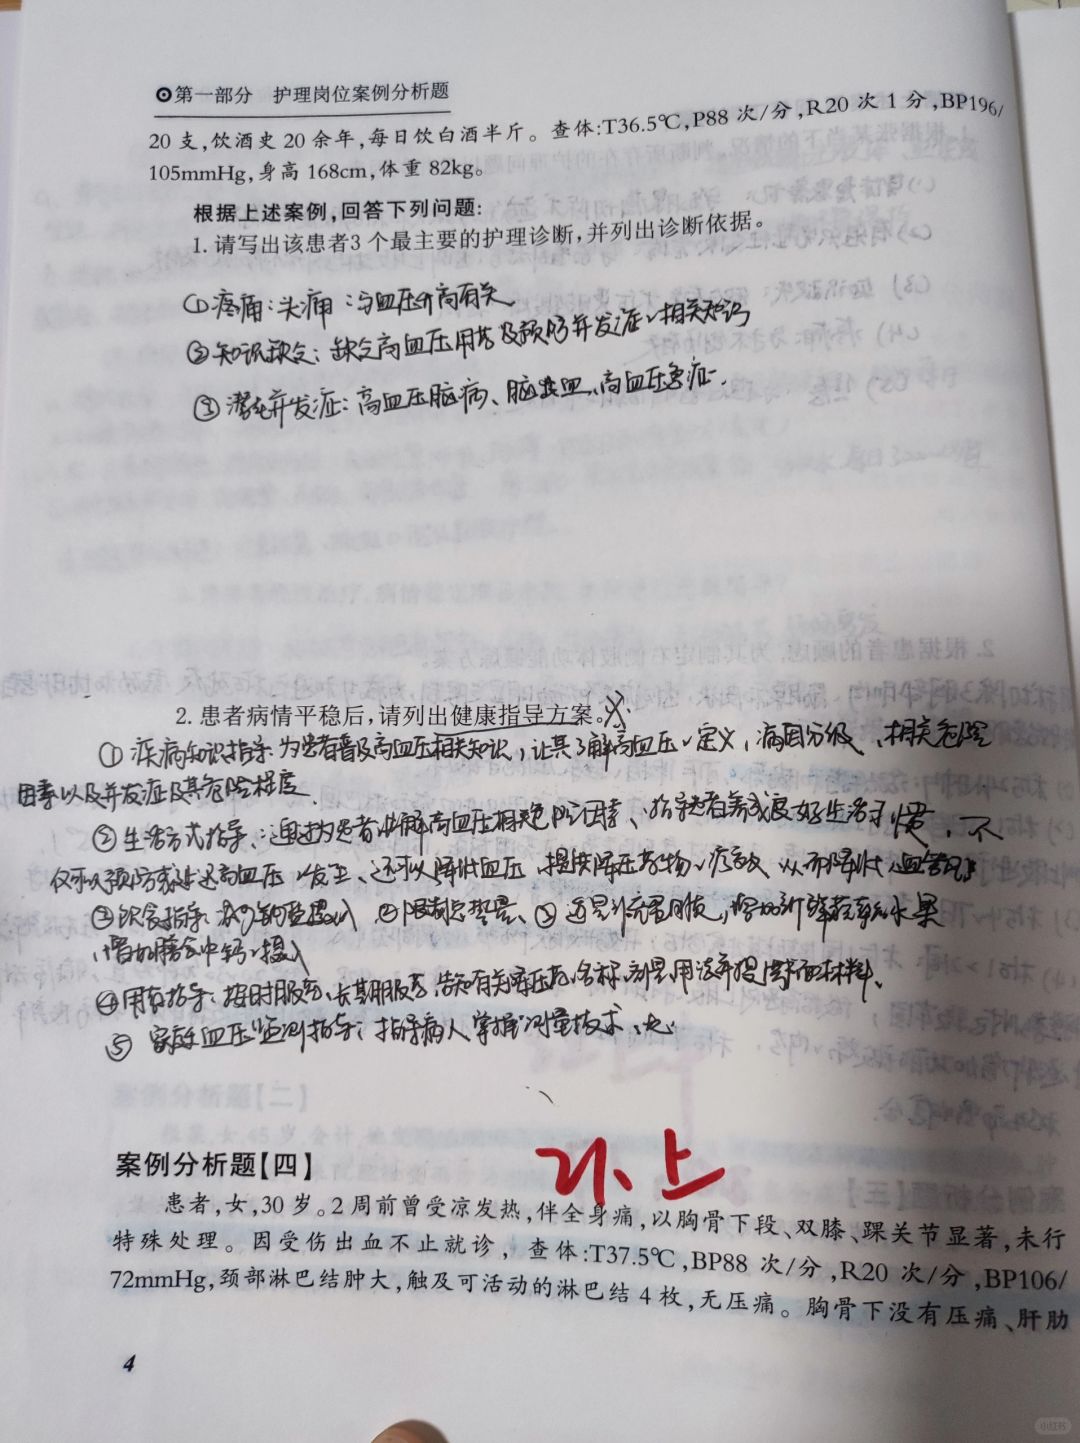 ⊙第一部分 护理岗位案例分析题
20 支,饮酒史 20 余年,每日饮白酒半斤。查体:T36.5℃,P88 次/分,R20 次 1 分,BP196/
105mmHg,身高 168cm,体重 82kg。
根据上述案例,回答下列问题:
1. 请写出该患者3 个最主要的护理诊断,并列出诊断依据。
①疼痛:头痛:与血压升高有关
②知识缺乏:缺乏高血压用药及预防并发症、相关知识
③潜在并发症:高血压脑病、脑出血、高血压急症.
2. 患者病情平稳后,请列出健康指导方案。
①疾病知识指导:为患者普及高血压相关知识,让其了解高血压、定义,病因分级、相关危险
因素以及并发症及其危险程度
②生活方式指导:通过为患者讲解高血压相关危险因素、指导患者养成良好生活习惯,不
仅可以预防或延迟高血压、发生、还可以降低血压,提供降压药物、疗效 从而降低
③饮食指导:减少钠盐摄入 ②限制总热量、③适量补充蛋白质,增加新鲜蔬菜和水果
增加膳食中钙、摄入
④用药指导:按时服药,长期服药,告知有关降压药、名称、剂量、用法并提供书面材料、
⑤家庭血压监测指导:指导病人掌握测量技术、
21、上
案例分析题【四】
患者,女,30 岁。2 周前曾受凉发热,伴全身痛,以胸骨下段、双膝、踝关节显著,未行
特殊处理。因受伤出血不止就诊,查体:T37.5℃,BP88 次/分,R20 次/分,BP106/
72mmHg,颈部淋巴结肿大,触及可活动的淋巴结 4 枚,无压痛。胸骨下没有压痛、肝肋
4
小红书